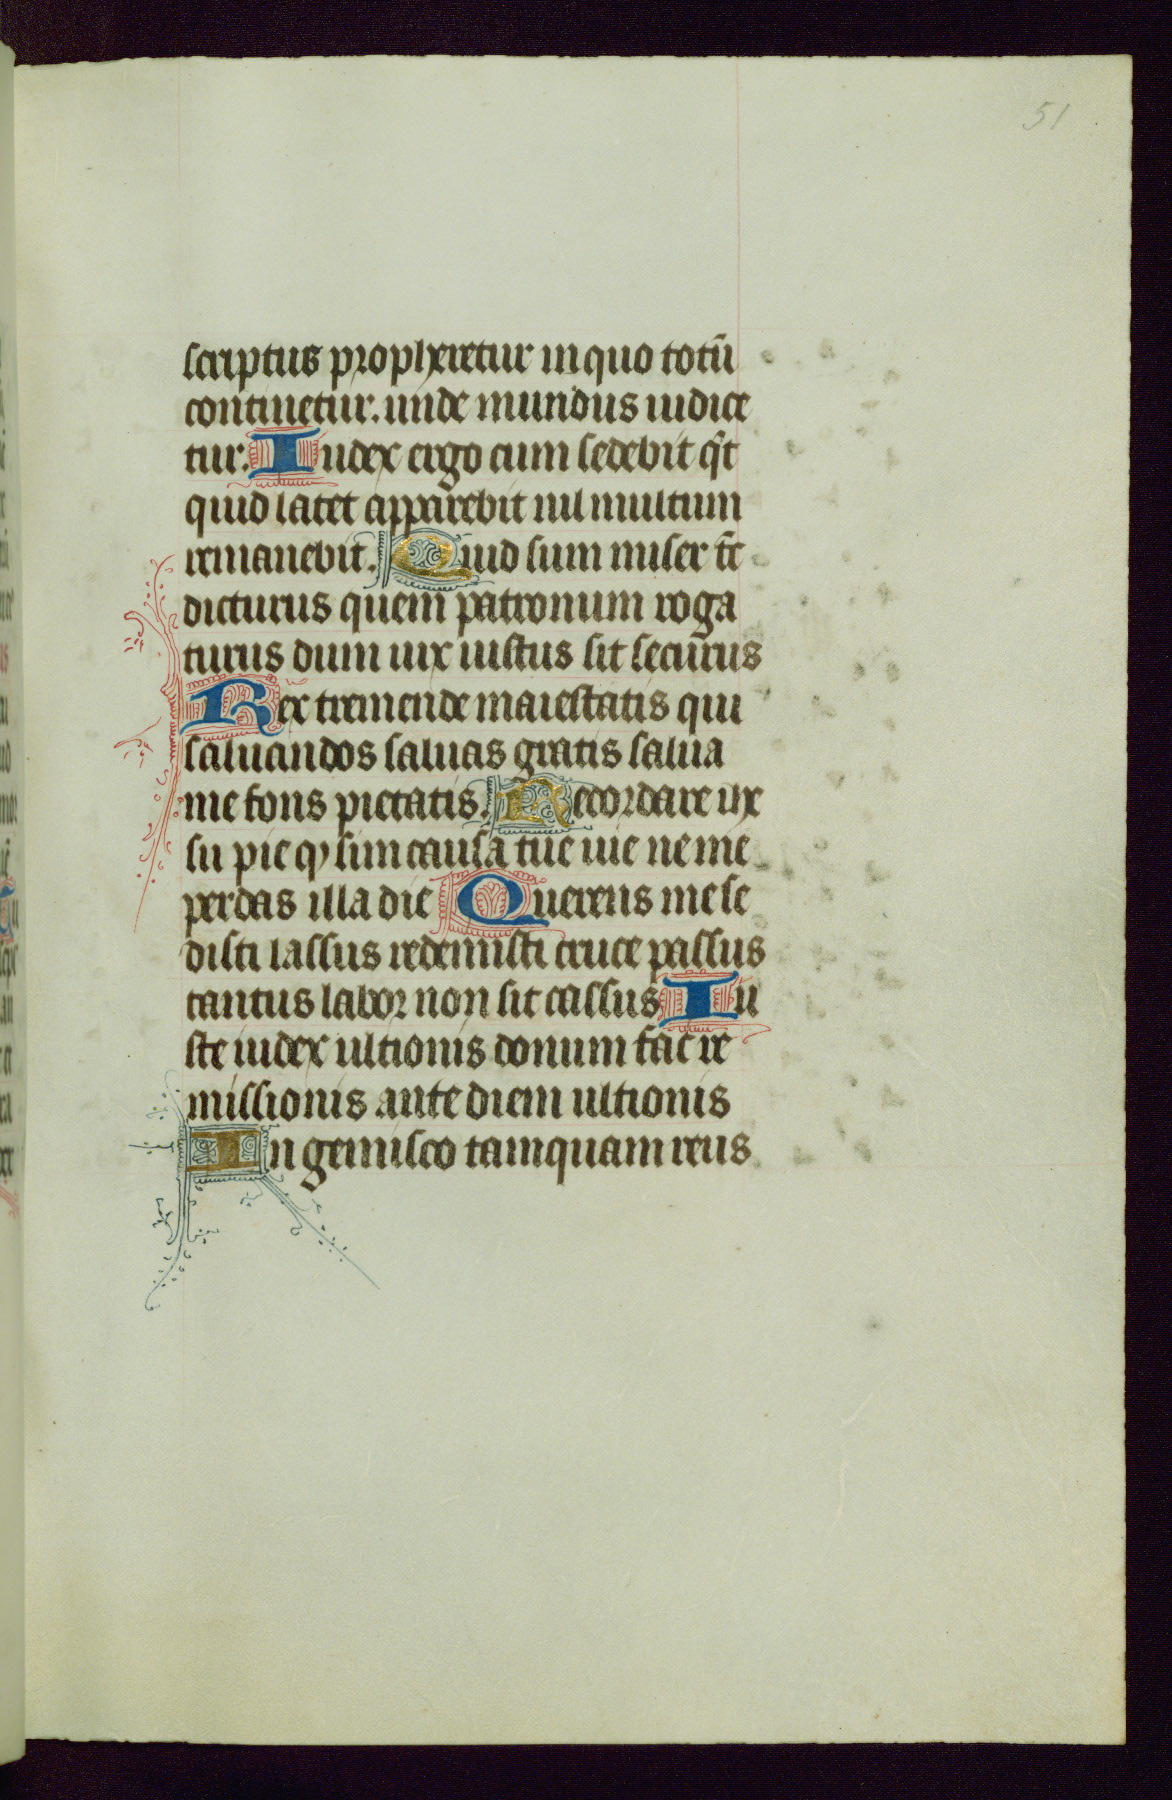 51
scriptus propheretur in quo totū
continetur. unde mundus iudice
tur. Iudex ergo cum sedebit q̄t
quid latet apparebit nil multum
remanebit. Quid sum miser tc̄
dicturus quem patronum roga
turus dum uix iustus sit securus
Rex tremende maiestatis qui
saluandos saluas gratis salua
me fons pietatis. Recordare ihe
su pie q̄ sum causa tue uie ne me
perdas illa die Querens me se
disti lassus redemisti cruce passus
tantus labor non sit cassus Iu
ste iudex ultionis donum fac re
missionis ante diem ultionis
In gemisco tamquam reus